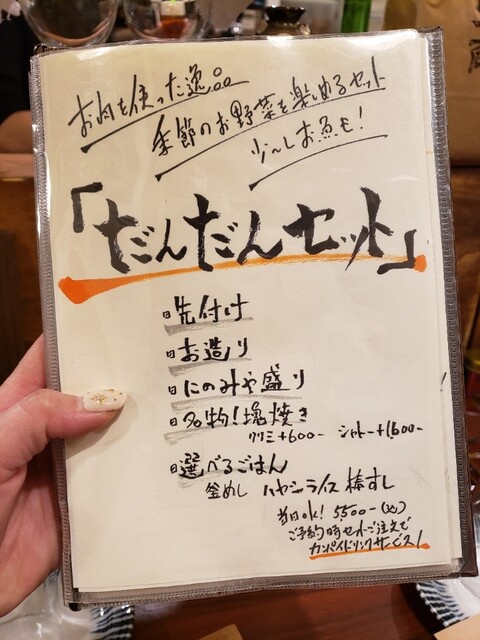 お肉を使った逸品
季節のお野菜を楽しめるセット
少〜しお魚も!
「だんだんセット」
先付け
お造り
にのみや盛り
名物!塊焼き
クリミ+600- シャトー+1,600-
選べるごはん
釜めし ハヤシライス 棒すし
当日ok! 5,500-(込)
ご予約時セットご注文で
カンパイドリンクサービス!